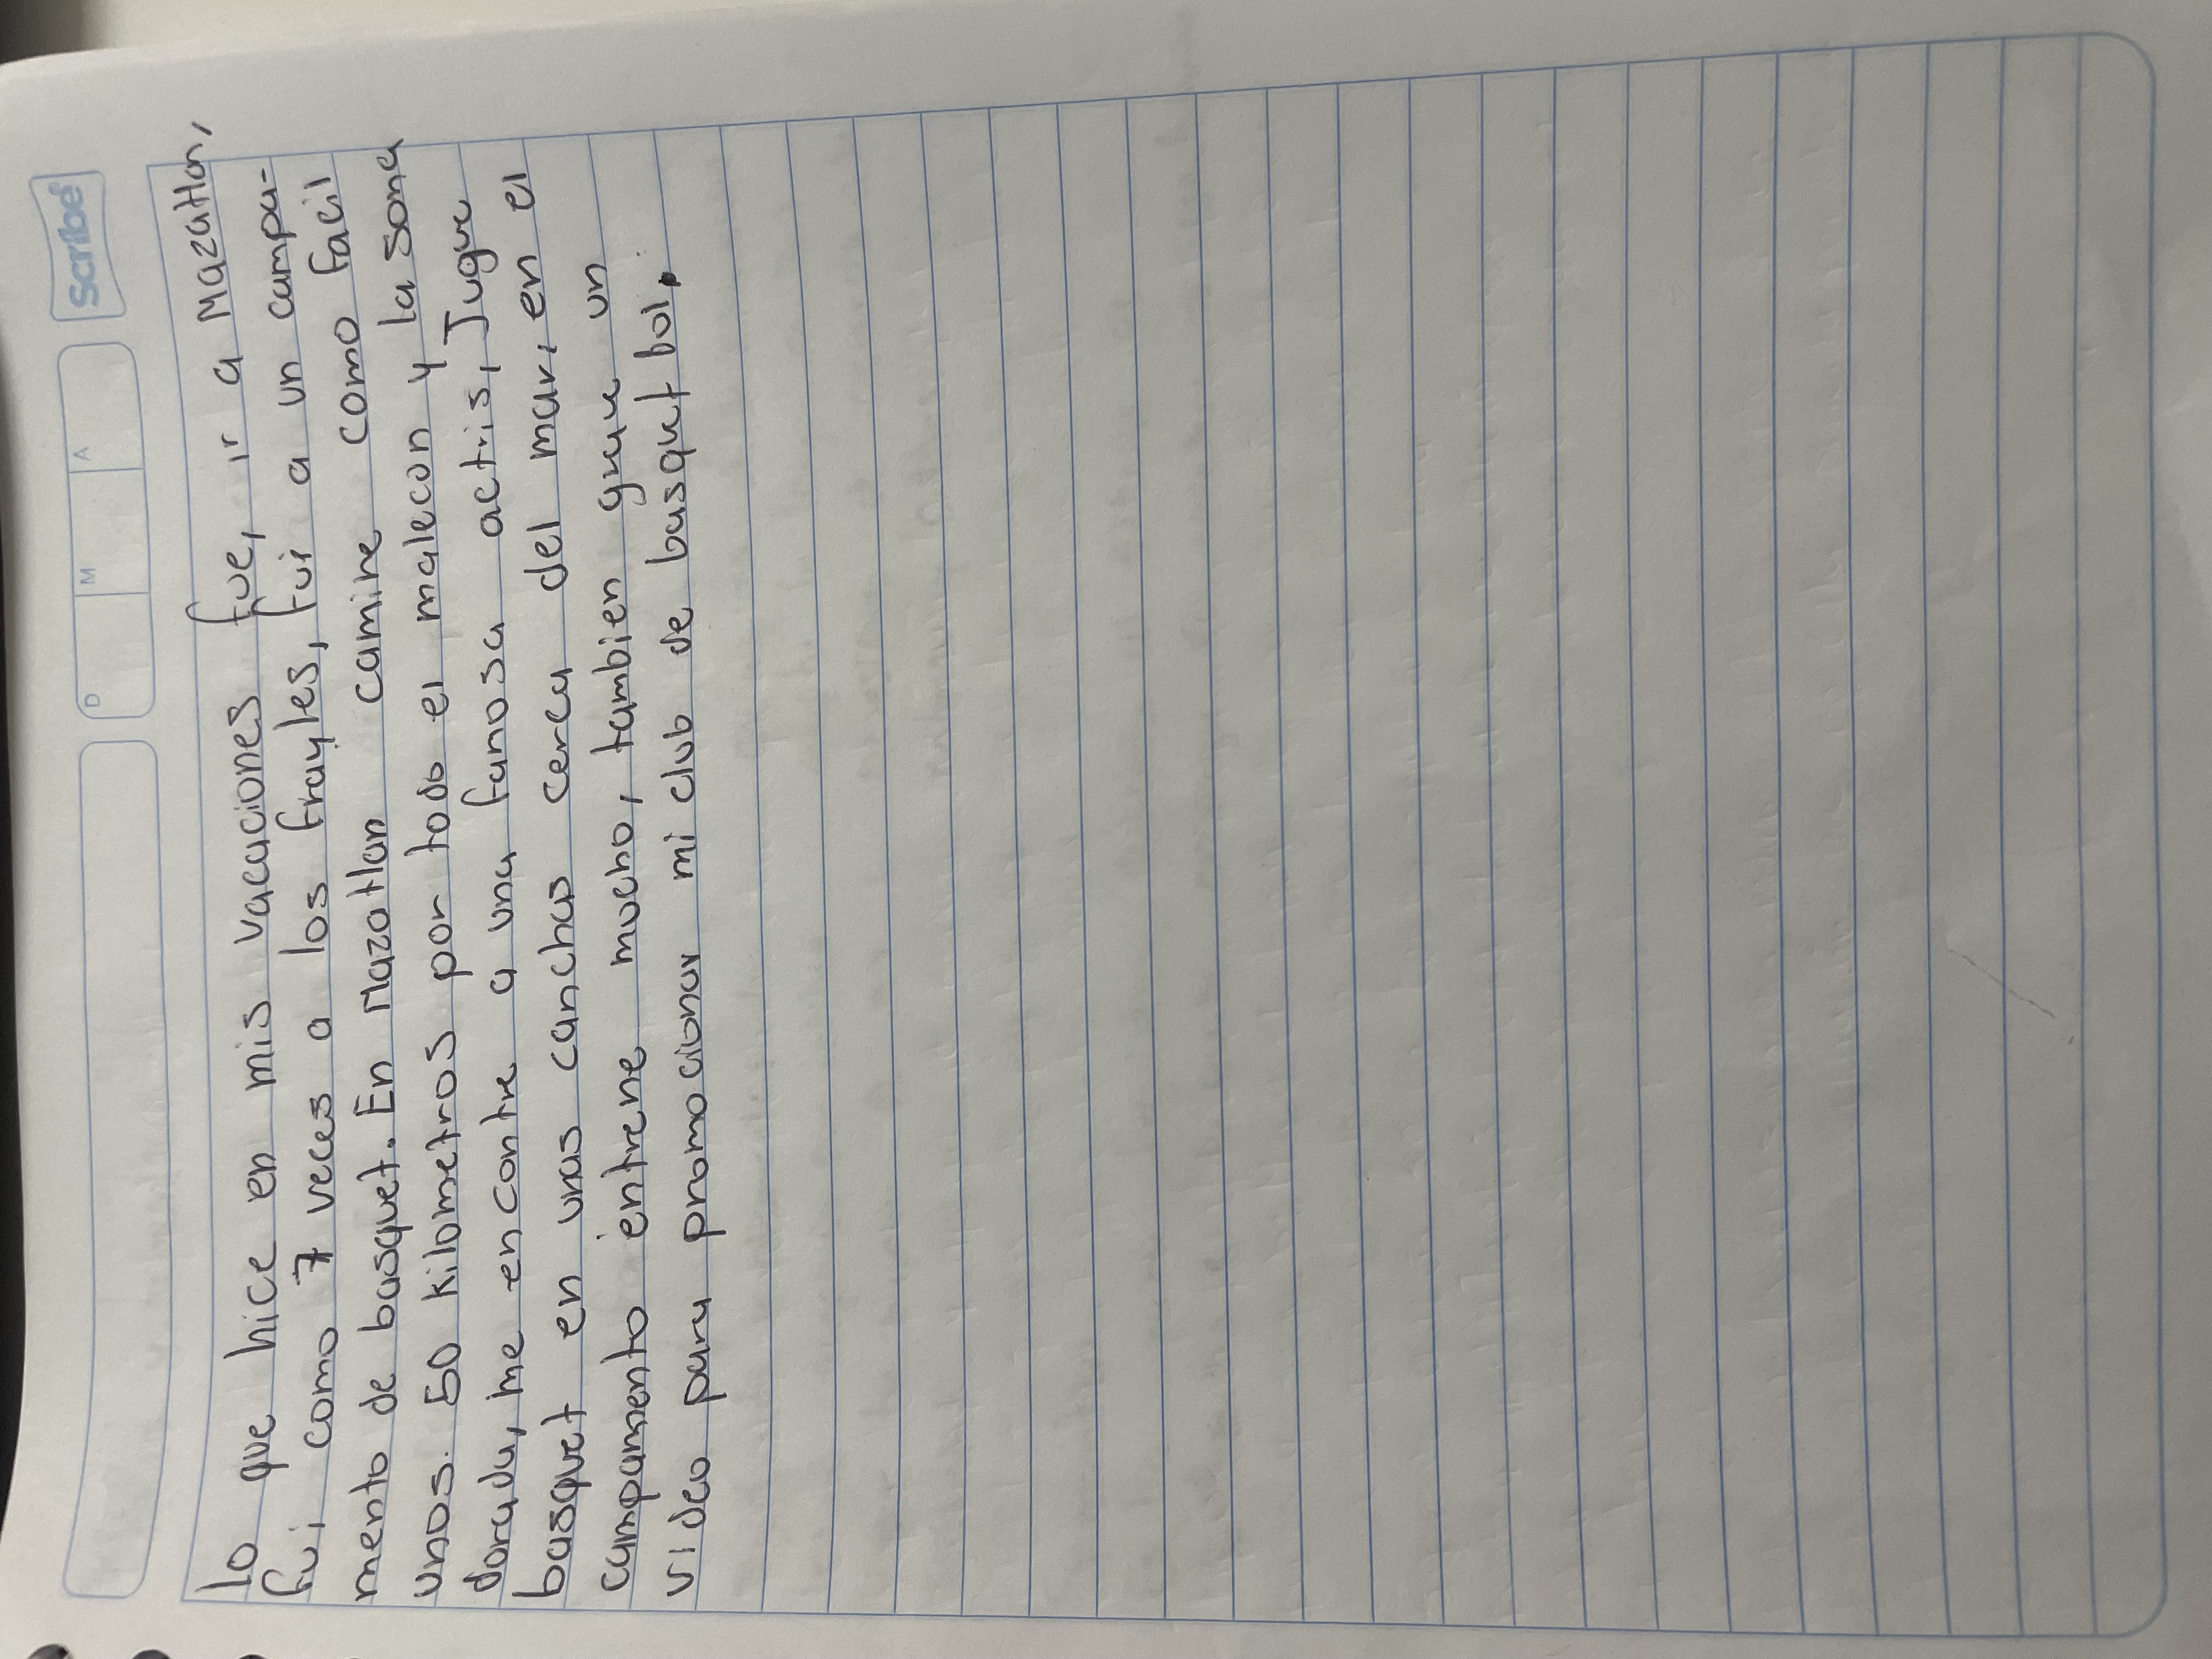 Scribe
D M A
lo que hice en mis vacaciones fue, ir a Mazatlan,
fui como 7 veces a los frayles, fui a un campa-
mento de basquet. En Mazatlan camine como facil
unos. 50 kilometros por todo el malecon y la sona
dorada, me encontre a una famosa actris, Jugue
basquet en unas canchas cerca del mar, en el
campamento entrene mucho, tambien grave un
video para promocionar mi club de basquet bol.